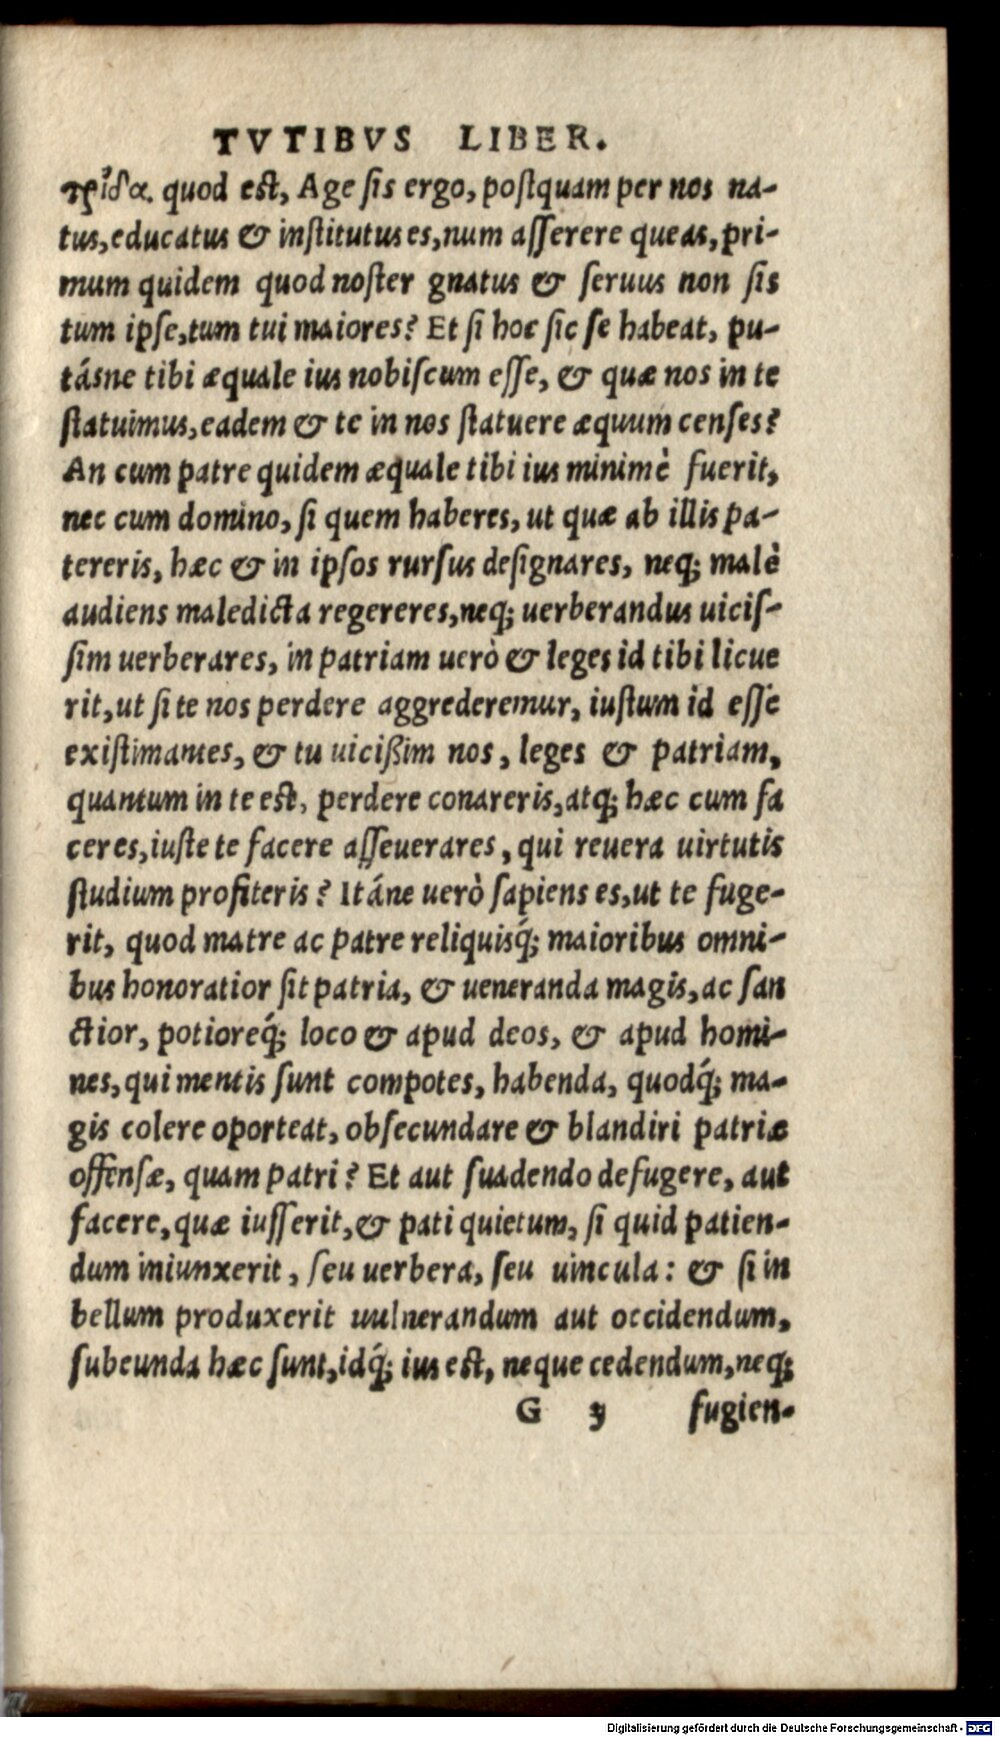 TVTIBVS LIBER.
τρίδα. quod est, Age ſis ergo, poſtquam per nos na-
tus, educatus & inſtitutus es, num aſſerere queas, pri-
mum quidem quod noſter gnatus & ſeruus non ſis
tum ipſe, tum tui maiores? Et ſi hoc ſic ſe habeat, pu-
tásne tibi æquale ius nobiſcum eſſe, & quæ nos in te
ſtatuimus, eadem & te in nos ſtatuere æquum cenſes?
An cum patre quidem æquale tibi ius minimè fuerit,
nec cum domino, ſi quem haberes, ut quæ ab illis pa-
tereris, hæc & in ipſos rurſus deſignares, neq; malè
audiens maledicta regereres, neq; uerberandus uiciſ-
ſim uerberares, in patriam uerò & leges id tibi licue
rit, ut ſi te nos perdere aggrederemur, iuſtum id eſſe
exiſtimantes, & tu uicißim nos, leges & patriam,
quantum in te est, perdere conareris, atq; hæc cum fa
ceres, iuſte te facere aſſeuerares, qui reuera uirtutis
ſtudium profiteris? Itáne uerò ſapiens es, ut te fuge-
rit, quod matre ac patre reliquisq́; maioribus omni-
bus honoratior ſit patria, & ueneranda magis, ac ſan
ctior, potioreq́; loco & apud deos, & apud homi-
nes, qui mentis ſunt compotes, habenda, quodq́; ma-
gis colere oporteat, obſecundare & blandiri patriæ
offenſæ, quam patri? Et aut ſuadendo defugere, aut
facere, quæ iuſſerit, & pati quietum, ſi quid patien-
dum iniunxerit, ſeu uerbera, ſeu uincula: & ſi in
bellum produxerit uulnerandum aut occidendum,
ſubeunda hæc ſunt, idq́; ius est, neque cedendum, neq;
G ꝫ fugien-
Digitalisierung gefördert durch die Deutsche Forschungsgemeinschaft - DFG